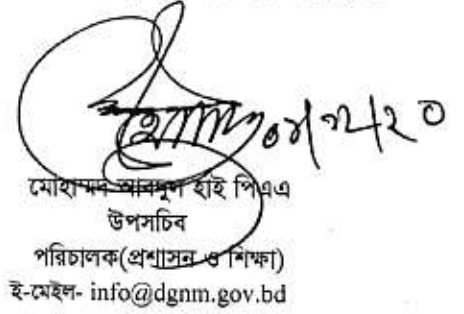 মোহাম্মদ আবদুল হাই পিএএ
উপসচিব
পরিচালক(প্রশাসন ও শিক্ষা)
ই-মেইল- info@dgnm.gov.bd